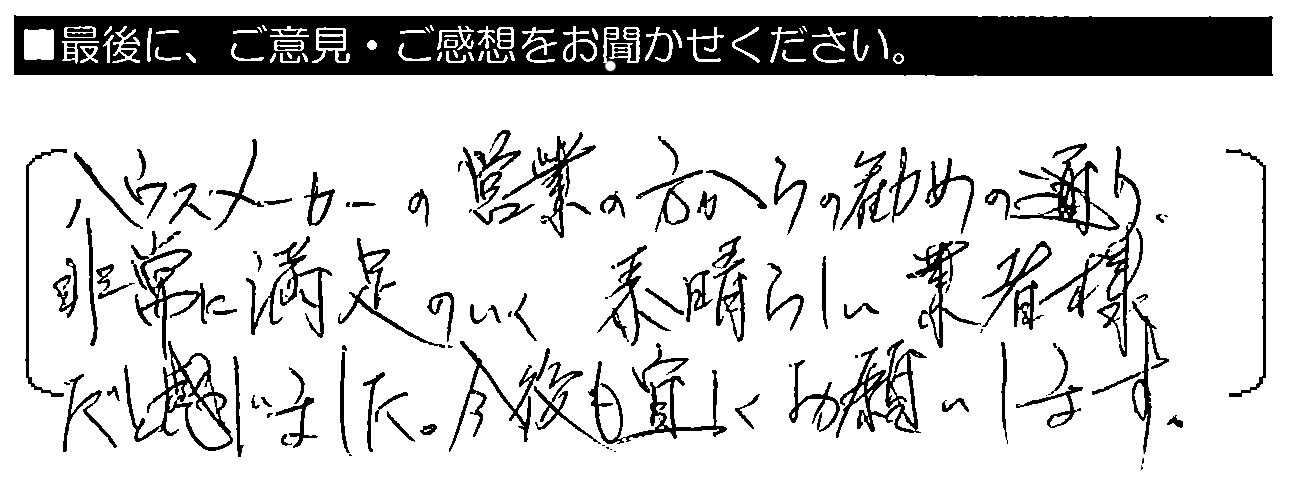 ■最後に、ご意見・ご感想をお聞かせください。
ハウスメーカーの営業の方からの勧めの通り、
非常に満足のいく 素晴らしい業者様
だと感じました。今後も宜しくお願いします。